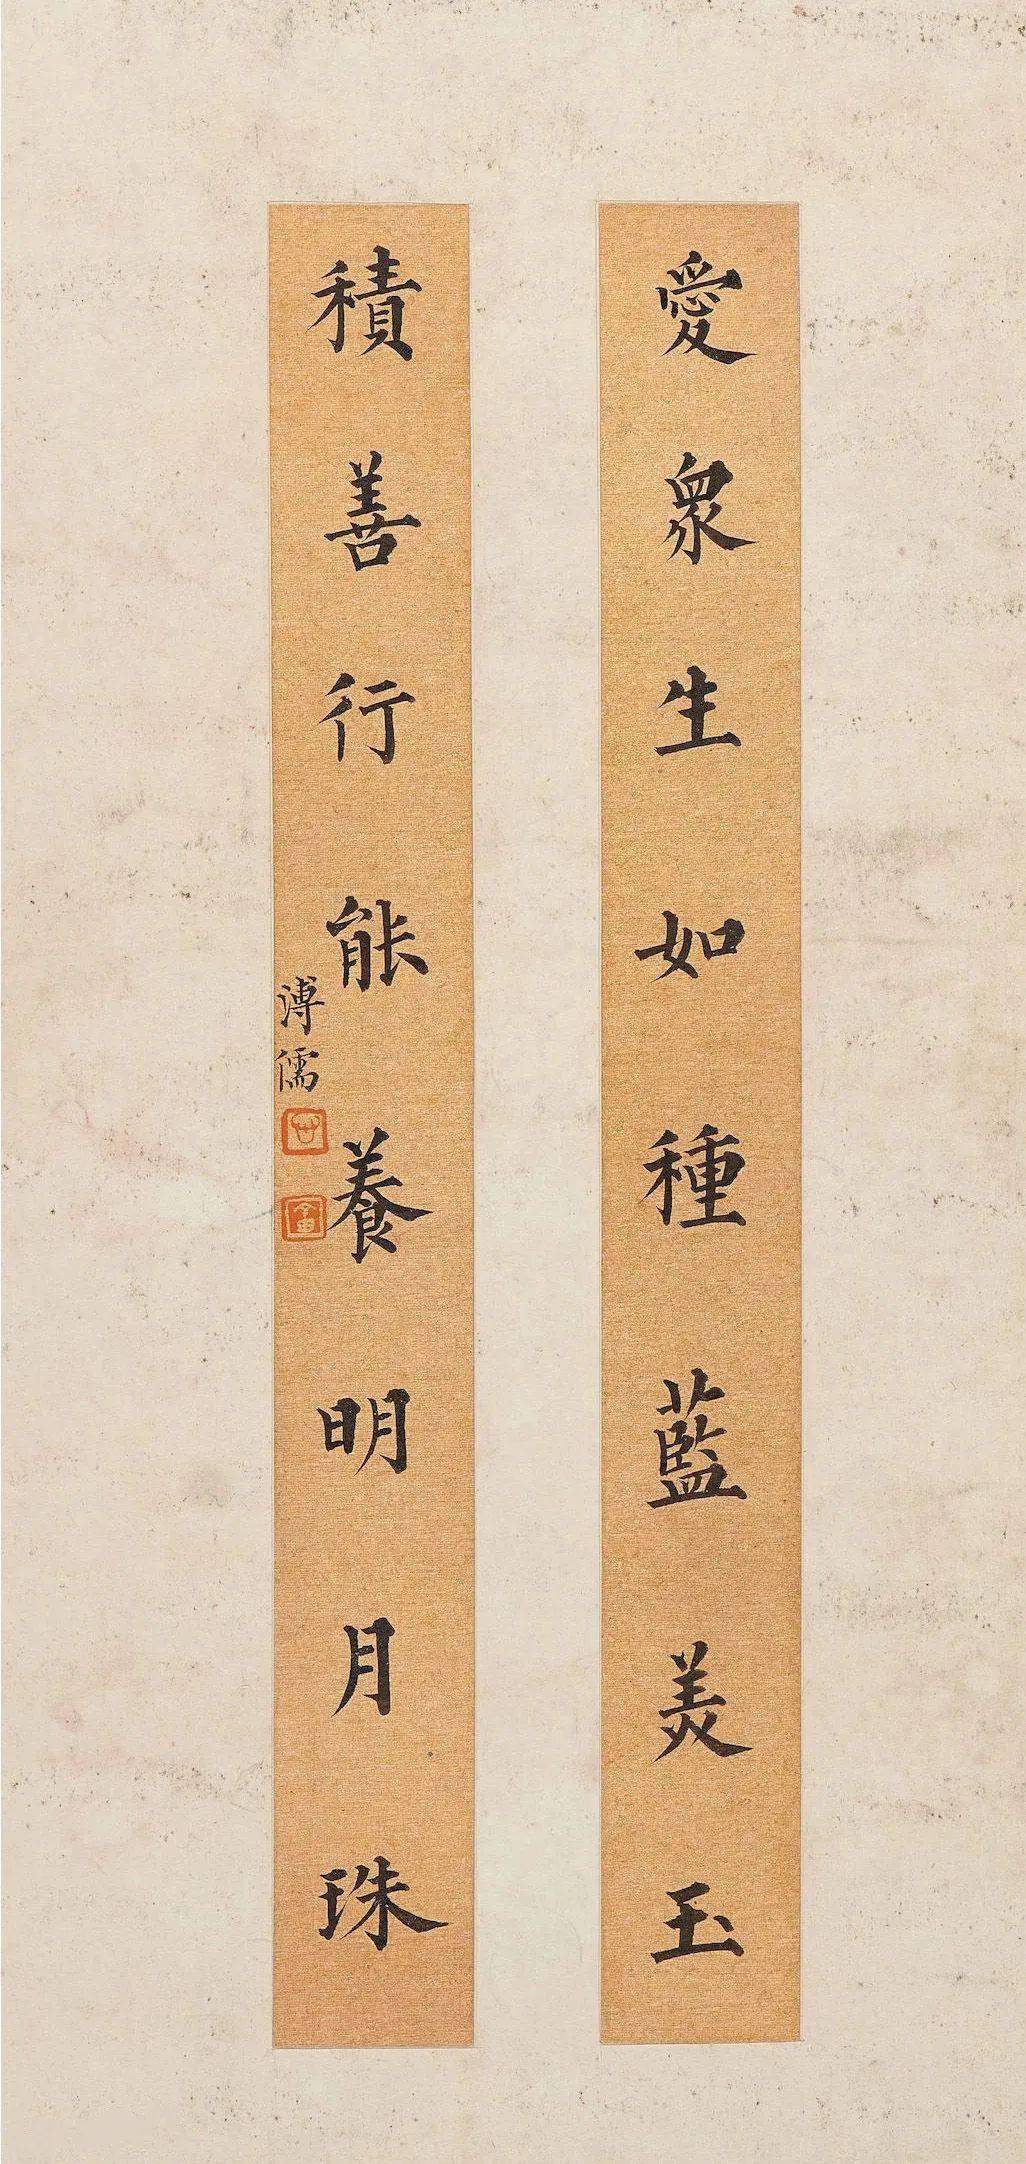 愛衆生如種藍美玉
積善行能養明月珠
溥儒